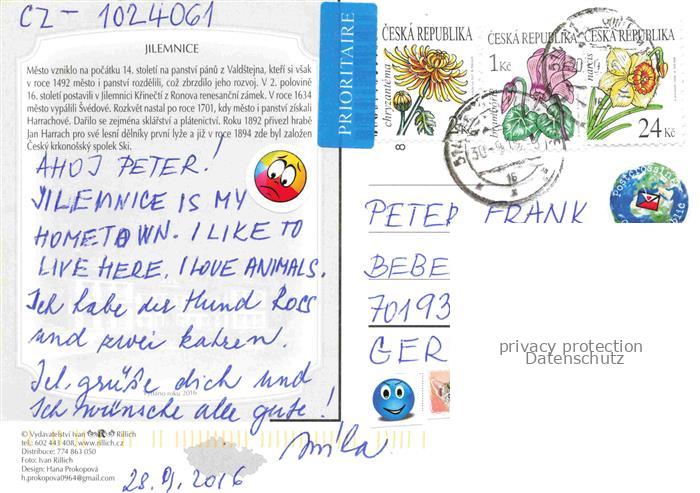 CZ-1024061
JILEMNICE
Město vzniklo na počátku 14. století na panství pánů z Valdštejna, kteří si však
v roce 1492 město i panství rozdělili, což zbrzdilo jeho rozvoj. V 2. polovině
16. století postavili v Jilemnici Křinečtí z Ronova renesanční zámek. V roce 1634
město vypálili Švédové. Rozkvět nastal po roce 1701, kdy město i panství získali
Harrachové. Dařilo se zejména sklářství a plátenictví. Roku 1892 přivezl hrabě
Jan Harrach pro své lesní dělníky první lyže a již v roce 1894 zde byl založen
Český krkonošský spolek Ski.
AHOJ PETER!
JILEMNICE IS MY
HOMETOWN. I LIKE TO
LIVE HERE, I LOVE ANIMALS.
Ich habe der Hund Ross
und zwei katzen.
Ich grüße dich und
Ich wünsche alle gute!
Vydáno roku 2016
Mila
28.9.2016
© Vydavatelství Ivan Rillich
tel.: 602 443 408, www.rillich.cz
Distribuce: 774 863 050
Foto: Ivan Rillich
Design: Hana Prokopová
h.prokopova0964@gmail.com
PRIORITAIRE
ČESKÁ REPUBLIKA
chryzantéma
8
ČESKÁ REPUBLIKA
1 Kč
brambořík
ČESKÁ REPUBLIKA
narcis
24 Kč
Postcrossing
PETER FRANK
BEBE
70193
GER
privacy protection
Datenschutz